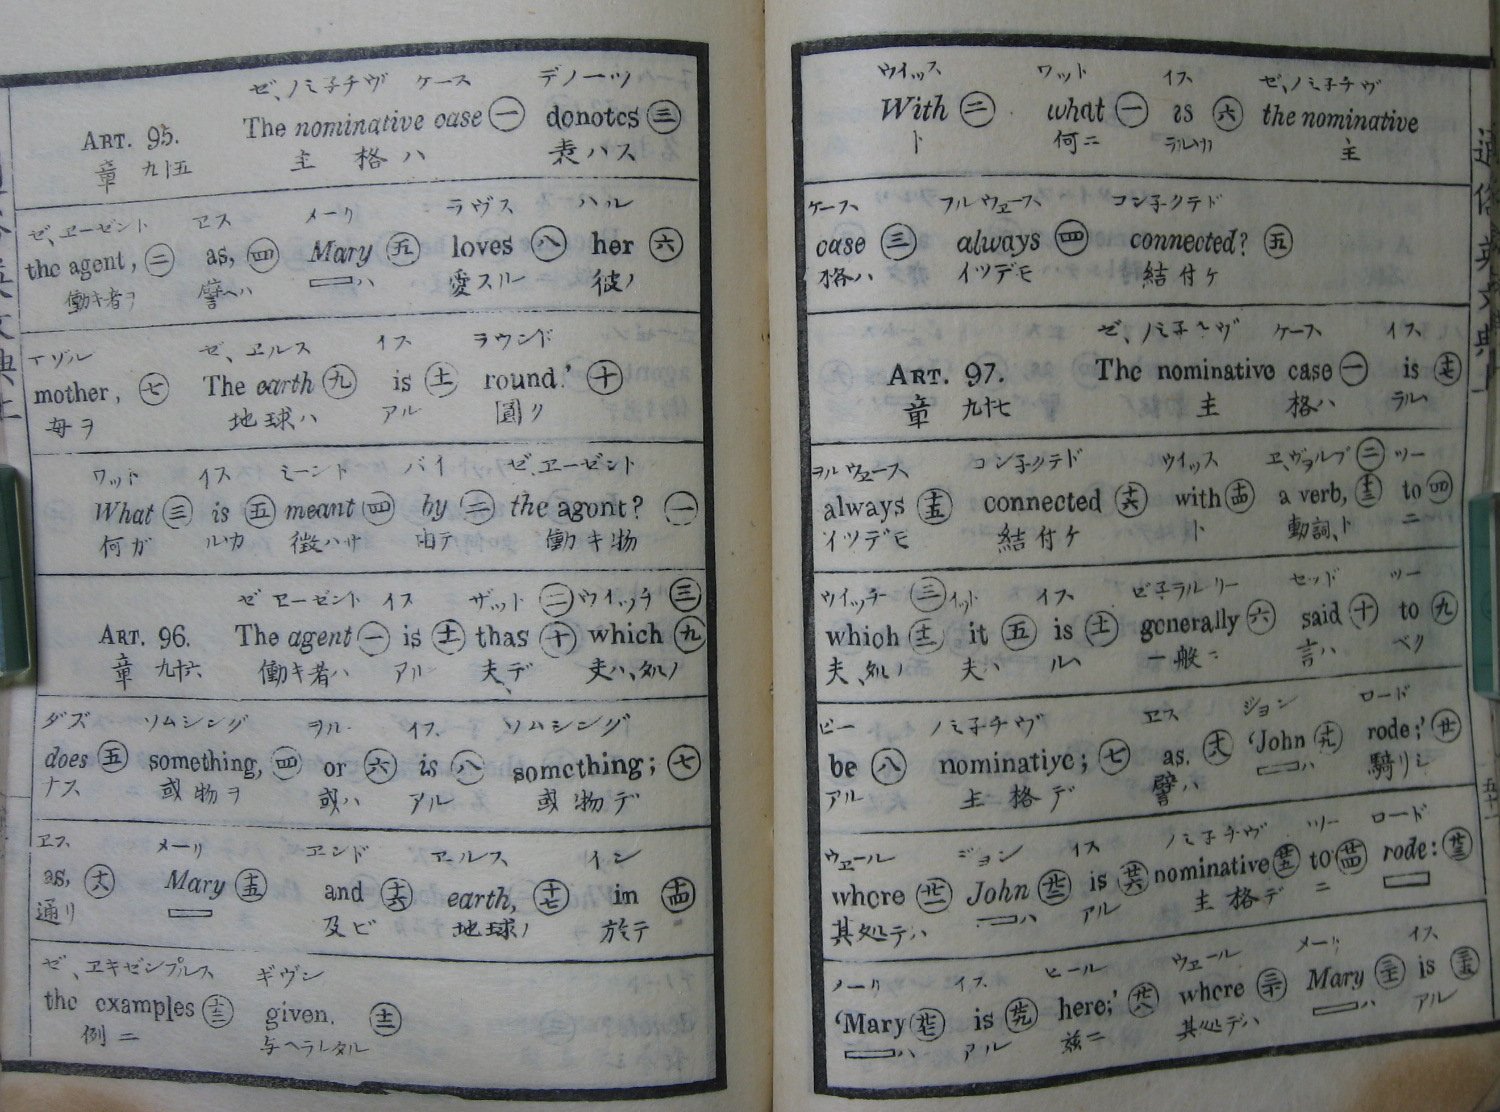 ゼ、ノミ子チヴ ケース デノーツ
ART. 95. The nominative case 一 denotes 三
章 九十五 主 格ハ 表ハス
ゼ、ヱーゼント ヱス メーリ ラヴス ハル
the agent, 二 as, 四 Mary 五 loves 八 her 六
働キ者ヲ 譬ヘハ ハ 愛スル 彼ノ
ゼ、ヱルス イス ラウンド
mother, 七 The earth 九 is 十一 round.' 十
母ヲ 地球ハ アル 圓ク
ワット イス ミーンド バイ ゼ、ヱーゼント
What 三 is 五 meant 四 by 二 the agent? 一
何ガ ルカ 徴ハサ 由テ 働キ物
ゼ ヱーゼント イス ザット 二 ウイッチ 三
ART. 96. The agent 一 is 十一 thas 十 which 九
章 九十六 働キ者ハ アル 夫デ、 夫ハ、処ノ
ダズ ソムシング ヲル イス ソムシング
does 五 something, 四 or 六 is 八 something; 七
ナス 或物ヲ 或ハ アル 或物デ
ヱス メーリ ヱンド ヱルス イン
as, 十八 Mary 十五 and 十六 earth, 十七 in 十四
通リ 及ビ 地球ノ 於テ
ゼ、ヱキゼンプルス ギヴン
the examples 十三 given. 十二
例ニ 与ヘラレタル
ウイッス ワット イス ゼ、ノミ子チヴ
With 二 what 一 is 六 the nominative
ト 何ニ 主
ケース ヲルウヱース コン子クテド
case 三 always 四 connected? 五
格ハ イツデモ 結付ケ
ゼ、ノミ子チヴ ケース イス
ART. 97. The nominative case 一 is 十七
章 九十七 主 格ハ ラルハ
ヲルウヱース コン子クテド ウイッス ヱ、ヴァルブ 二 ツー
always 十五 connected 十六 with 十四 a verb, 十三 to 四
イツデモ 結付ケ ト 動詞、ト ニ
ウイッチ 三 イット イス ゼ子ラルリー セッド ツー
which 十二 it 五 is 十一 generally 六 said 十 to 九
夫、処ノ 夫ハ ルハ 一般ニ 言ハ ベク
ビー ノミ子チヴ ヱス ジョン ロード
be 八 nominatiye; 七 as, 十八 'John 十九 rode;' 廿
アル 主格デ 譬ハ ハ 騎リシ
ウヱール ジョン イス ノミ子チヴ ツー ロード
where 廿一 John 廿二 is 廿六 nominative 廿五 to 廿四 rode: 廿三
其処デハ ハ アル 主格デ ニ
メーリ イス ヒール ウヱール メーリ イス
'Mary 廿七 is 廿九 here;' 廿八 where 三十 Mary 三十一 is 三十五
ハ アル 茲ニ 其処デハ ハ アル